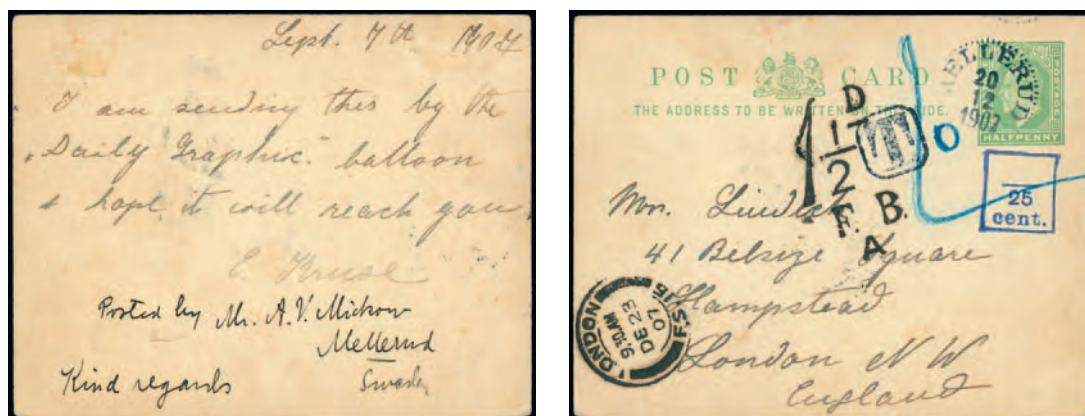 Sept. 7th 1907
I am sending this by the
"Daily Graphic" balloon
& hope it will reach you
E Kruse
Posted by Mr. A. V. Mickow
Mellerud
Sweden
Kind regards
POST CARD
THE ADDRESS TO BE WRITTEN ON THIS SIDE.
POSTAGE
HALFPENNY
MELLERUD
20
12
1907
D
1
2
T
F. B.
A
25
cent.
Mrs.
41 Belsize Square
Hampstead
London N W
England
LONDON F.S. 15
9.30 AM
DE 23
07